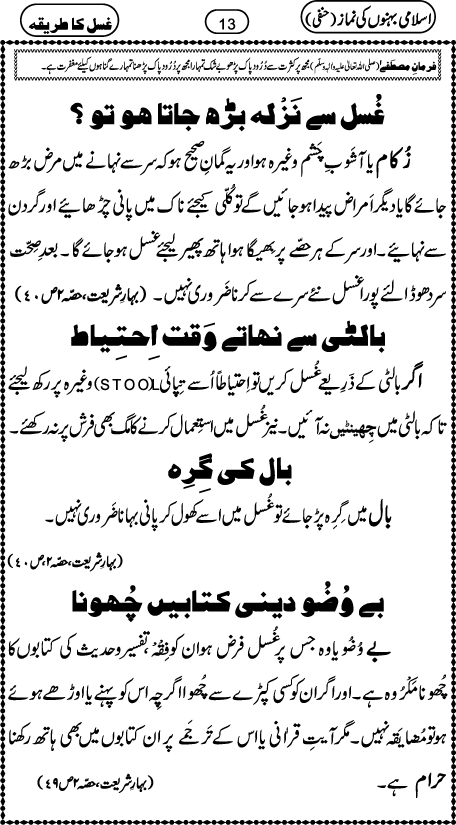 اسلامی بہنوں کی نماز (حنفی)
13
غسل کا طریقہ
فرمانِ مصطَفٰے (صلی اللہ تعالیٰ علیہ والہٖ وسلّم) مجھ پر کثرت سے دُرُود پاک پڑھو بے شک تمہارا مجھ پر دُرُود پاک پڑھنا تمہارے گناہوں کیلئے مغفرت ہے۔
غُسل سے نَزْلہ بڑھ جاتا ھو تو ؟
زُکام یا آشوبِ چشم وغیرہ ہو اور یہ گمانِ صحیح ہو کہ سر سے نہانے میں مرض بڑھ
جائے گا یا دیگر اَمراض پیدا ہو جائیں گے تو کُلّی کیجئے ناک میں پانی چڑھائیے اور گردن
سے نہائیے۔ اور سر کے ہر حصّے پر بھیگا ہوا ہاتھ پھیر لیجئے غسل ہو جائے گا۔ بعدِ صِحّت
سر دھو ڈالئے پورا غسل نئے سرے سے کرنا ضَروری نہیں۔ (بہارِ شریعت، حصّہ ۲ ص ۴۰)
بالٹی سے نھاتے وَقت اِحتِیاط
اگر بالٹی کے ذَرِیعے غُسل کریں تو اِحتیاطاً اُسے تِپائی (STOOL) وغیرہ پر رکھ لیجئے
تا کہ بالٹی میں چھینٹیں نہ آئیں۔ نیز غُسل میں استِعمال کرنے کا مگ بھی فرش پر نہ رکھئے۔
بال کی گِرِہ
بال میں گِرِہ پڑ جائے تو غُسل میں اسے کھول کر پانی بہانا ضَروری نہیں۔
(بہارِ شریعت، حصّہ ۲، ص ۴۰)
بے وُضُو دینی کتابیں چُھونا
بے وُضُو یا وہ جس پر غُسل فرض ہو ان کو فِقْہ، تفسیر و حدیث کی کتابوں کا
چُھونا مکروہ ہے۔ اور اگر ان کو کسی کپڑے سے چُھوا اگرچِہ اس کو پہنے یا اوڑھے ہوئے
ہو تو مُضایَقہ نہیں۔ مگر آیتِ قرانی یا اس کے تَرجَمے پر ان کتابوں میں بھی ہاتھ رکھنا
حرام ہے۔ (بہارِ شریعت، حصّہ ۲ ص ۴۹)